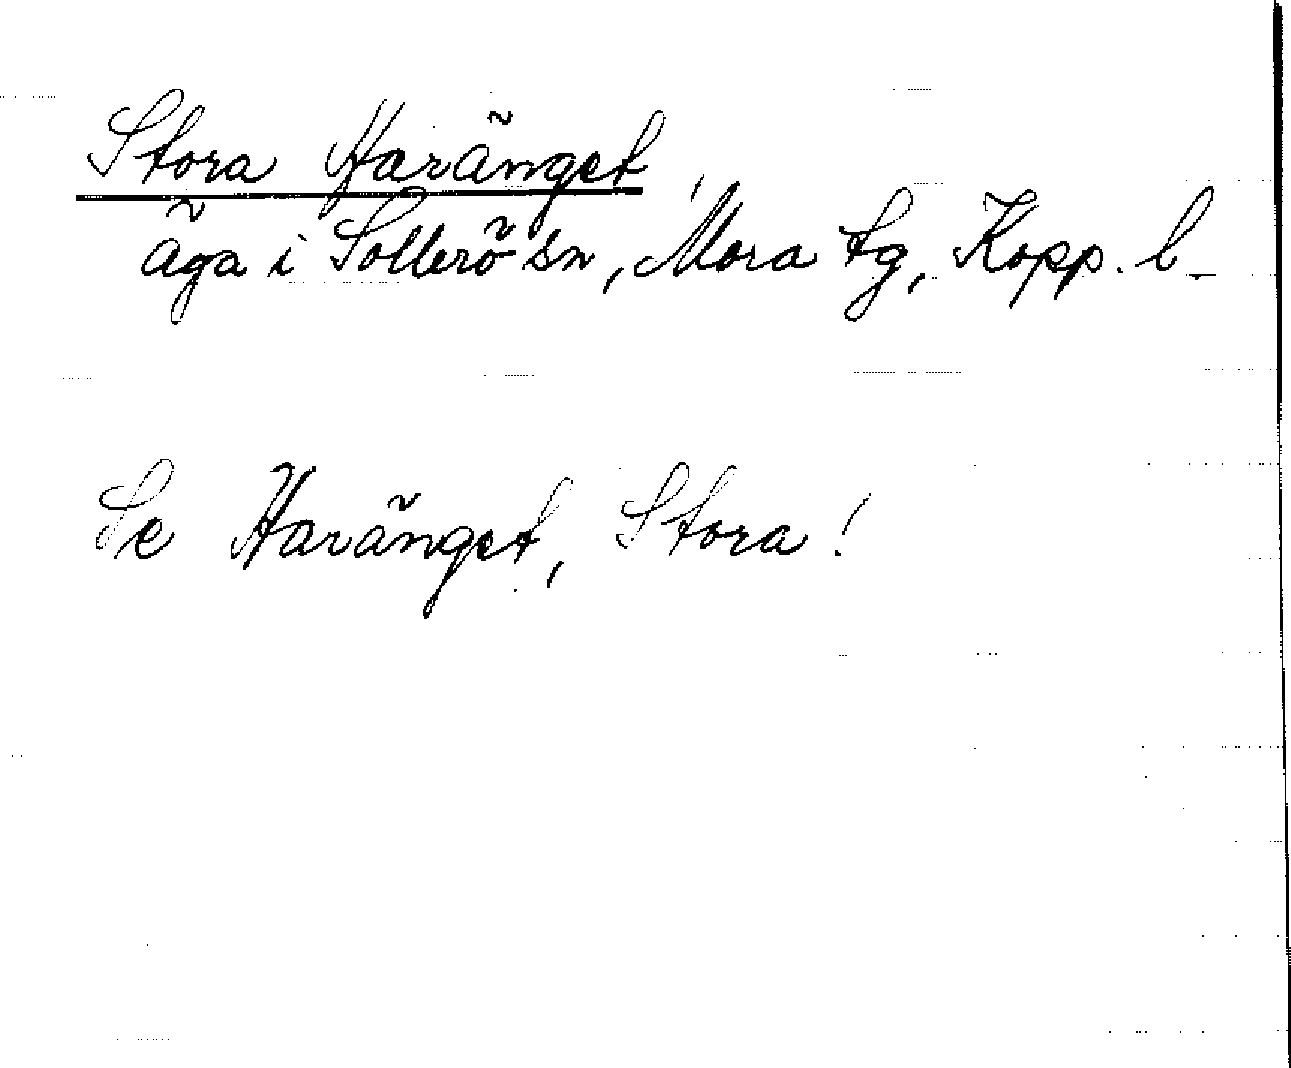 Stora Haränget
äga i Sollerö sn, Mora tg, Kopp. l.
Se Haränget, Stora!